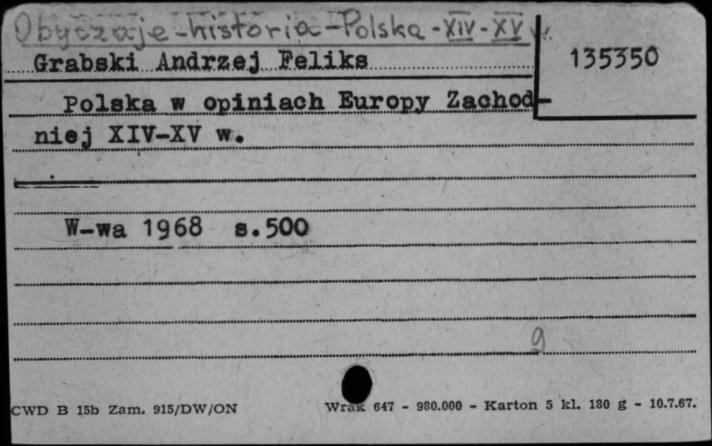 Obyczaje - historia - Polska - XIV - XV w.
135350
Grabski Andrzej Feliks
Polska w opiniach Europy Zachod-
niej XIV-XV w.
W-wa 1968 s.500
9
CWD B 15b Zam. 915/DW/ON
Wrak 647 - 980.000 - Karton 5 kl. 180 g - 10.7.67.